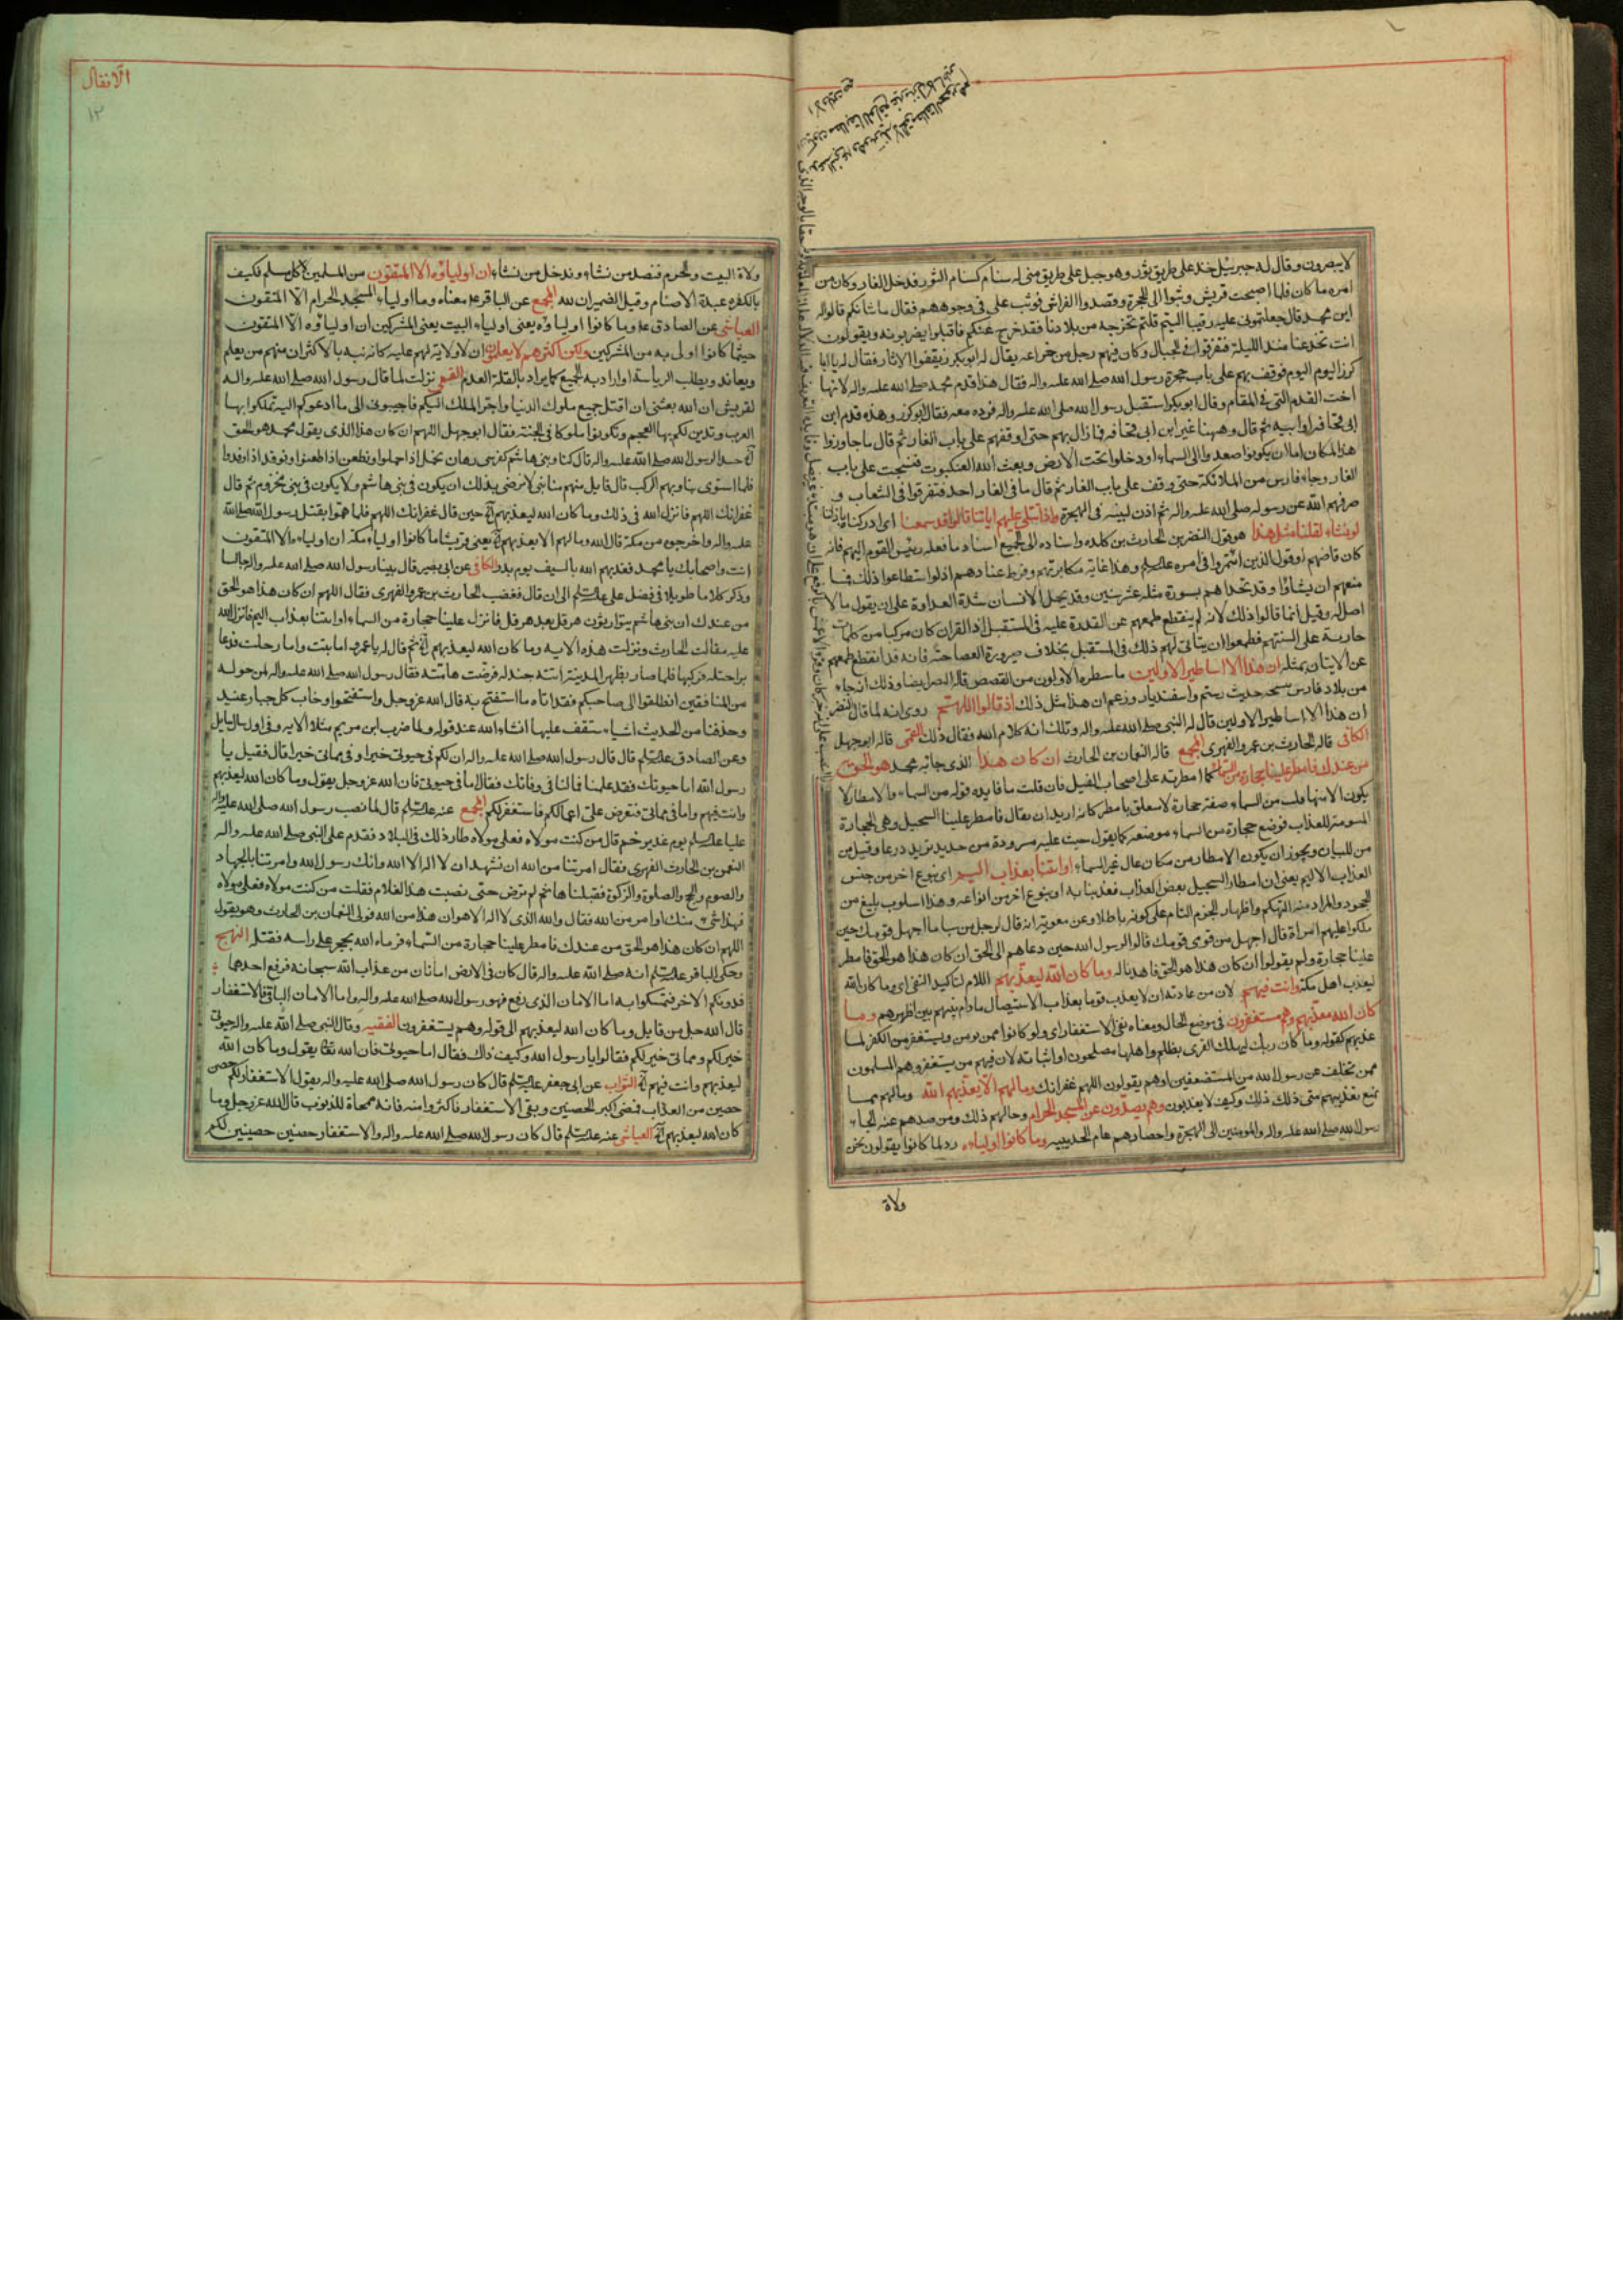 لا يبصرون وقال له جبرئيل خذ على طريق ثور وهو جبل على طريق منى له سنام كسنام الثور فدخل الغار وكان من
امره ما كان فلما اصبحت قريش وثبوا الى الحجرة وقصدوا الفراش فوثب على في وجوههم فقال ما شانكم قالوا له
اين محمد قال جعلتموني عليه رقيبا الستم قلتم نخرجه من بلادنا فقد خرج عنكم فاقبلوا يضربونه ويقولون
انت تخدعنا منذ الليلة فتفرقوا في الجبال وكان فيهم رجل من خزاعه يقال له ابو كرز يقفوا الاثار فقال له يا ابا
كرز اليوم اليوم فوقف بهم على باب حجرة رسول الله صلى الله عليه واله فقال هذا قدم محمد صلى الله عليه واله لانها
اخت القدم التي في المقام وقال ابو بكر استقبل رسول الله صلى الله عليه واله فرده معه فقال ابو كرز وهذه قدم ابن
ابي قحافه او ابيه ثم قال وههنا غير ابن ابي قحافه فما زال بهم حتى اوقفهم على باب الغار ثم قال ما جاوزوا
هذا المكان اما ان يكونوا صعدوا الى السماء او دخلوا تحت الارض وبعث الله العنكبوت فنسجت على باب
الغار وجاء فارس من الملائكة حتى وقف على باب الغار ثم قال ما في الغار احد فتفرقوا في الشعاب و
صرفهم الله عن رسوله صلى الله عليه واله ثم اذن لنبيه في الهجرة واذا تتلى عليهم اياتنا قالوا قد سمعنا
لو نشاء لقلنا مثل هذا هو قول النضر بن الحارث بن كلده واسناده الى الجميع اسناد ما فعله رئيس القوم اليهم فانه
كان قاضيهم او قول الذين ائتمروا في امره عليه السلم وهذا غاية مكابرتهم وفرط عنادهم اذ لو استطاعوا ذلك فما
منعهم ان يشاؤا وقد تحداهم بسورة مثله عشر سنين وقد يحمل الانسان شدة العداوة على ان يقول ما لا
اصل له وقيل انما قالوا ذلك لانه لم ينقطع طمعهم عن القدرة عليه في المستقبل اذ القران كان مركبا من كلمات
جارية على السنتهم فطمعوا ان يتاتى لهم ذلك في المستقبل بخلاف صيرورة العصا حية فانه قد انقطع طمعهم
عن الاتيان بمثله ان هذا الا اساطير الاولين ما سطره الاولون من القصص قاله النضر ايضا وذلك انه جاء
من بلاد فارس بنسخه حديث رستم واسفنديار وزعم ان هذا مثل ذلك اذ قالوا اللهم روى انه لما قال النضر
ان هذا الا اساطير الاولين قال له النبي صلى الله عليه واله ويلك انه كلام الله فقال ذلك القمي قاله ابو جهل
الكافى قاله الحارث بن عمرو الفهرى المجمع قاله النعمان بن الحارث ان كان هذا الذي جاء به محمد هو الحق
من عندك فامطر علينا حجارة من السماء كما امطرته على اصحاب الفيل فان قلت ما فايدة قوله من السماء والامطار لا
يكون الا منها قلت من السماء صفة حجارة لا متعلق بامطر كانه اريد ان يقال فامطر علينا السجيل وهي الحجارة
المسومة للعذاب فوضع حجارة من السماء موضعه كما يقول صب عليه مسرودة من حديد تريد درعا وقيل من
من للبيان ويجوز ان يكون الامطار من مكان عال غير السماء او ائتنا بعذاب اليم اي بنوع اخر من جنس
العذاب الاليم يعني ان امطار السجيل بعض العذاب فعذبنا به او بنوع اخر من انواعه وهذا اسلوب بليغ من
الجحود والمراد منه التهكم واظهار الجزم التام على كونه باطلا وعن معوية انه قال لرجل من سبا ما اجهل قومك حين
ملكوا عليهم امراة قال اجهل من قومي قومك قالوا لرسول الله حين دعاهم الى الحق ان كان هذا هو الحق فامطر
علينا حجارة ولم يقولوا ان كان هذا هو الحق فاهدنا له وما كان الله ليعذبهم اللام لتاكيد النفى اى وما كان الله
ليعذب اهل مكة وانت فيهم لان من عادته ان لا يعذب قوما بعذاب الاستيصال ما دام نبيهم بين اظهرهم وما
كان الله معذبهم وهم يستغفرون في موضع الحال ومعناه نفي الاستغفار اي ولو كانوا ممن يومن ويستغفر من الكفر لما
عذبهم كقوله وما كان ربك ليهلك القرى بظلم واهلها مصلحون او اثباته لان فيهم من يستغفر وهم المسلمون
ممن تخلف عن رسول الله من المستضعفين او هم يقولون اللهم غفرانك وما لهم الا يعذبهم الله وما لهم مما
يمنع تعذيبهم متى ذلك وكيف لا يعذبون وهم يصدون عن المسجد الحرام وحالهم ذلك ومن صدهم عنه الجاء
رسول الله صلى الله عليه واله والمومنين الى الهجرة واحصارهم عام الحديبيه وما كانوا اولياءه رد لما كانوا يقولون نحن
ولاة
الانفال
١٢
ولاة البيت والحرم فنصد من نشاء وندخل من نشاء ان اولياؤه الا المتقون من المسلمين لا كل مسلم فكيف
بالكفره عبدة الاصنام وقيل الضميران لله المجمع عن الباقر ع معناه وما اولياء المسجد الحرام الا المتقون
العياشى عن الصادق ع وما كانوا اولياؤه يعني اولياء البيت يعني المشركين ان اولياؤه الا المتقون
حيثما كانوا اولى به من المشركين ولكن اكثرهم لا يعلمون ان لا ولاية لهم عليه كانه نبه بالاكثر ان منهم من يعلم
ويعاند ويطلب الرياسة او اراد به الجميع كما يراد بالقلة العدم القمي نزلت لما قال رسول الله صلى الله عليه واله
لقريش ان الله بعثني ان اقتل جميع ملوك الدنيا واجر الملك اليكم فاجيبوني الى ما ادعوكم اليه تملكوا بها
العرب وتدين لكم بها العجم وتكونوا ملوكا في الجنة فقال ابو جهل اللهم ان كان هذا الذي يقول محمد هو الحق
الآية حسدا لرسول الله صلى الله عليه واله ثم قال كنا وبني هاشم كفرسى رهان نحمل اذا حملوا ونطعن اذا طعنوا ونوفد اذا وفدوا
فلما استوى بنا وبهم الركب قال قايل منهم منا نبي لا نرضى بذلك ان يكون في بني هاشم ولا يكون في بني مخزوم ثم قال
غفرانك اللهم فانزل الله في ذلك وما كان الله ليعذبهم الآية حين قال غفرانك اللهم فلما هموا بقتل رسول الله صلى الله
عليه واله واخرجوه من مكة قال الله وما لهم الا يعذبهم الآية يعني قريشا ما كانوا اولياء مكة ان اولياءه الا المتقون
انت واصحابك يا محمد فعذبهم الله بالسيف يوم بدر الكافى عن ابي بصير قال بينا رسول الله صلى الله عليه واله جالسا
وذكر كلاما طويلا في فضل على عليه السلم الى ان قال فغضب الحارث بن عمرو الفهرى فقال اللهم ان كان هذا هو الحق
من عندك ان بني هاشم يتوارثون هرقل بعد هرقل فانزل علينا حجارة من السماء او ائتنا بعذاب اليم فانزل الله
عليه مقالة الحارث ونزلت هذه الاية وما كان الله ليعذبهم الآية ثم قال له يا عمرو اما تبت واما رحلت فدعا
براحلته فركبها فلما صار بظهر المدينة اتته جندلة فرضت هامته فقال رسول الله صلى الله عليه واله لمن حوله
من المنافقين انطلقوا الى صاحبكم فقد اتاه ما استفتح به قال الله عز وجل واستفتحوا وخاب كل جبار عنيد
وحذفنا من الحديث اشياء ستقف عليها انشاء الله عند قوله ولما ضرب ابن مريم مثلا الايه وفي اول سال سايل
وعن الصادق عليه السلم قال قال رسول الله صلى الله عليه واله ان لكم في حيوتى خيرا وفي مماتى خيرا قال فقيل يا
رسول الله اما حيوتك فقد علمنا فما لنا في وفاتك فقال اما في حيوتى فان الله عز وجل يقول وما كان الله ليعذبهم
وانت فيهم واما في مماتى فتعرض على اعمالكم فاستغفر لكم المجمع عنه عليه السلم قال لما نصب رسول الله صلى الله عليه واله
عليا عليه السلم يوم غدير خم قال من كنت مولاه فعلى مولاه طار ذلك في البلاد فقدم على النبي صلى الله عليه واله
النعمن بن الحارث الفهرى فقال امرتنا من الله ان نشهد ان لا اله الا الله وانك رسول الله وامرتنا بالجهاد
والصوم والحج والصلوة والزكوة فقبلناها ثم لم ترض حتى نصبت هذا الغلام فقلت من كنت مولاه فعلى مولاه
فهذا شيء منك او امر من الله فقال والله الذي لا اله الا هو ان هذا من الله فولى النعمان بن الحارث وهو يقول
اللهم ان كان هذا هو الحق من عندك فامطر علينا حجارة من السماء فرماه الله بحجر على راسه فقتله النهج
وحكى الباقر عليه السلم انه صلى الله عليه واله قال كان في الارض امانان من عذاب الله سبحانه فرفع احدهما
فدونكم الاخر فتمسكوا به اما الامان الذي رفع فهو رسول الله صلى الله عليه واله واما الامان الباقي فالاستغفار
قال الله جل من قايل وما كان الله ليعذبهم الى قوله وهم يستغفرون الفقيه وقال النبي صلى الله عليه واله حيوتى
خير لكم ومماتى خير لكم فقالوا يا رسول الله وكيف ذاك فقال اما حيوتى فان الله تعالى يقول وما كان الله
ليعذبهم وانت فيهم الآية الثواب عن ابي جعفر عليه السلم قال كان رسول الله صلى الله عليه واله يقول الاستغفار لكم حصن
حصين من العذاب فمضى اكبر الحصنين وبقي الاستغفار فاكثروا منه فانه ممحاة للذنوب قال الله عز وجل وما
كان الله ليعذبهم الآية العياشى عنه عليه السلم قال كان رسول الله صلى الله عليه واله والاستغفار حصنين حصينين لكم